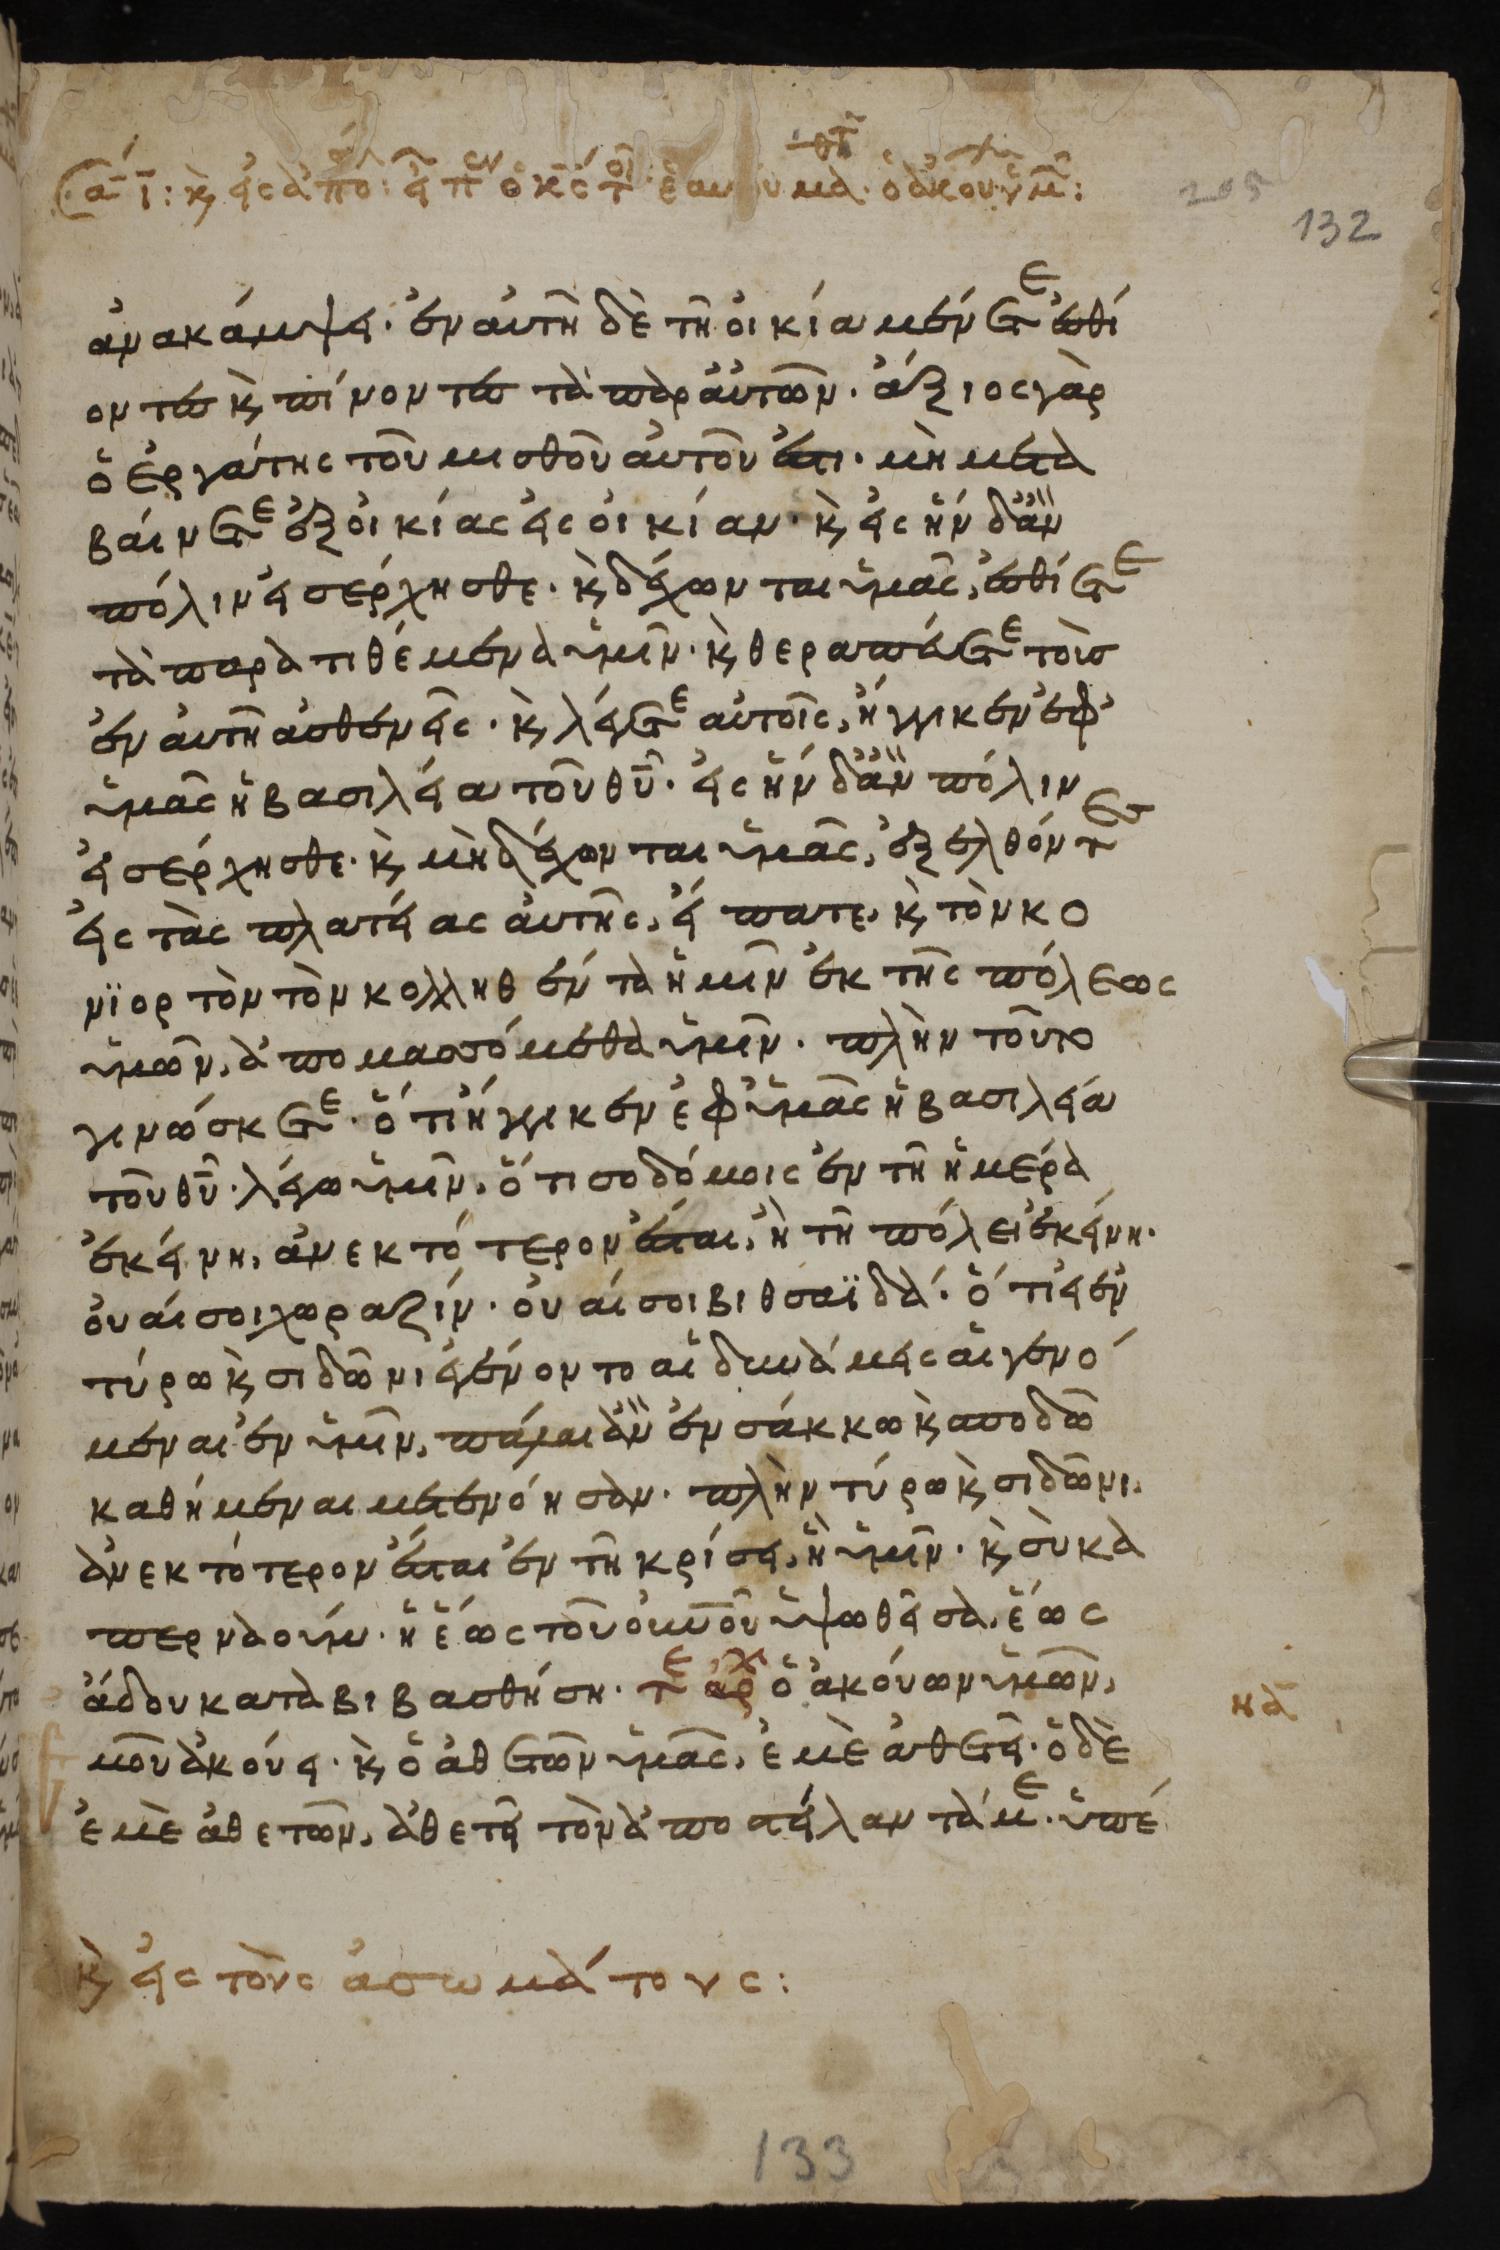 ἀνακάμψει· ἐν αὐτῆ δὲ τῆ οἰκία μένετε ἐσθί
οντω κ πίνοντω τὰ παρ αὐτῶν· ἄξιος γὰρ
ὁ ἐργάτης τοῦ μισθοῦ αὐτοῦ ἐστι· μὴ μετα
βαίνετε ἐξ οἰκίας εἰς οἰκίαν· κ εἰς ἣν δἂν
πόλιν εἰσέρχησθε· κ δέχωνται ὑμᾶς, ἐσθίετε
τὰ παρατιθέμενα ὑμῖν· κ θεραπεύετε τοὺς
ἐν αὐτῆ ἀσθενεῖς· κ λέγετε αὐτοῖς, ἤγγικεν ἐφ
ὑμᾶς ἡ βασιλεία τοῦ θῦ· εἰς ἣν δἂν πόλιν
εἰσέρχησθε· κ μὴ δέχωνται ὑμᾶς, ἐξελθόντες
εἰς τὰς πλατείας αὐτῆς, εἴπατε, κ τὸν κο
νϊορτὸν τὸν κολληθέντα ἡμῖν ἐκ τῆς πόλεως
ὑμῶν, ἀπομασσόμεθα ὑμῖν· πλὴν τοῦτο
γινώσκετε· ὅτι ἤγγικεν ἐφ ὑμᾶς ἡ βασιλεία
τοῦ θῦ· λέγω ὑμῖν, ὅτι σοδόμοις ἐν τῆ ἡμέρα
ἐκείνη, ἀνεκτότερον ἔσται, ἢ τῆ πόλει ἐκείνη·
οὐαί σοι χωραζίν· οὐαί σοι βιθσαϊδά· ὅτι εἰ ἐν
τύρω κ σιδῶνι ἐγένοντο αἱ δυνάμεις αἱ γενό
μεναι ἐν ὑμῖν, πάλαι ἂν ἐν σάκκω κ σποδῶ
καθήμεναι μετενόησαν· πλὴν τύρω κ σιδῶνι,
ἀνεκτότερον ἔσται ἐν τῆ κρίσει, ἢ ὑμῖν· κ σὺ κα
περναούμ· ἡ ἕως τοῦ οὐνοῦ ὑψωθεῖσα, ἕως
ἅδου καταβιβασθήση· ὁ ἀκούων ὑμῶν,
μοῦ ἀκούει· κ ὁ ἀθετῶν ὑμᾶς, ἐμὲ ἀθετεῖ· ὁ δὲ
ἐμὲ ἀθετῶν, ἀθετεῖ τὸν ἀποστείλαντά με· ὑπέ
κ εἰς τοὺς ἀσωμάτους:
132
133